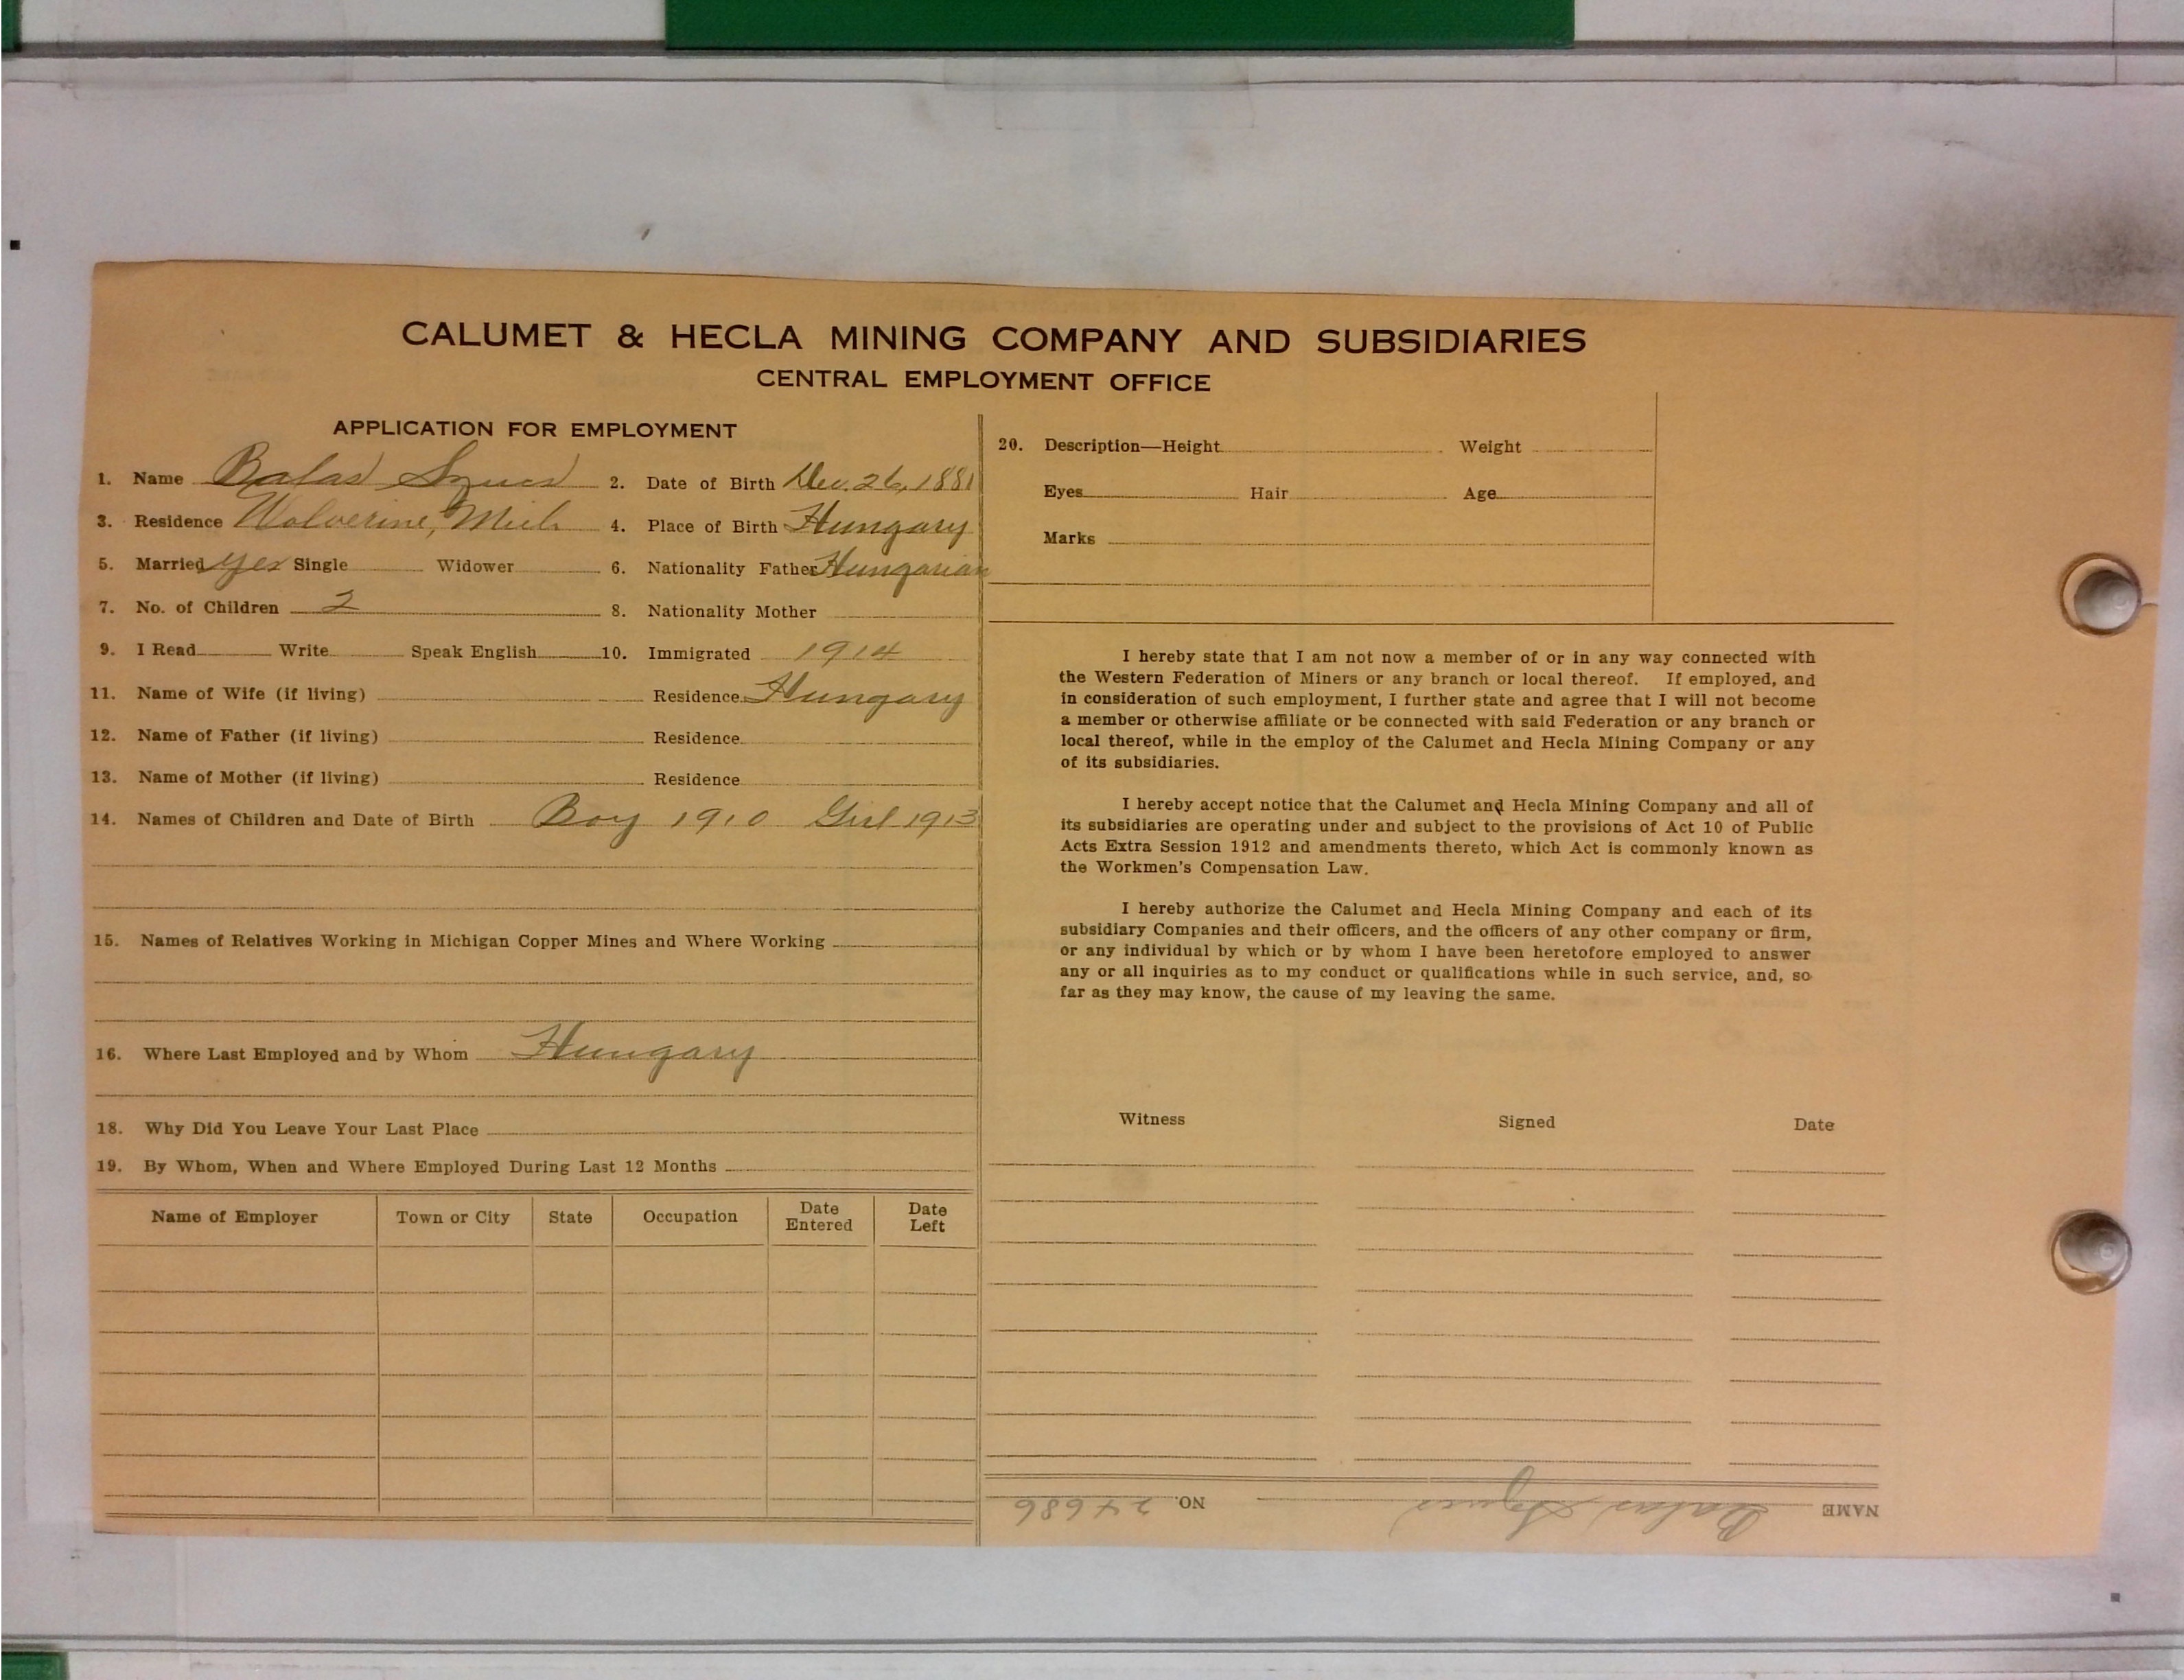 CALUMET & HECLA MINING COMPANY AND SUBSIDIARIES
CENTRAL EMPLOYMENT OFFICE
APPLICATION FOR EMPLOYMENT
1. Name Balas Szucs 2. Date of Birth Dec. 26, 1881
3. Residence Wolverine, Mich 4. Place of Birth Hungary
5. Married yes Single Widower 6. Nationality Father Hungarian
7. No. of Children 2 8. Nationality Mother
9. I Read Write Speak English 10. Immigrated 1914
11. Name of Wife (if living) Residence Hungary
12. Name of Father (if living) Residence
13. Name of Mother (if living) Residence
14. Names of Children and Date of Birth Boy 1910 Girl 1913
15. Names of Relatives Working in Michigan Copper Mines and Where Working
16. Where Last Employed and by Whom Hungary
18. Why Did You Leave Your Last Place
19. By Whom, When and Where Employed During Last 12 Months
Name of Employer Town or City State Occupation Date Entered Date Left
20. Description—Height Weight
Eyes Hair Age
Marks
I hereby state that I am not now a member of or in any way connected with
the Western Federation of Miners or any branch or local thereof. If employed, and
in consideration of such employment, I further state and agree that I will not become
a member or otherwise affiliate or be connected with said Federation or any branch or
local thereof, while in the employ of the Calumet and Hecla Mining Company or any
of its subsidiaries.
I hereby accept notice that the Calumet and Hecla Mining Company and all of
its subsidiaries are operating under and subject to the provisions of Act 10 of Public
Acts Extra Session 1912 and amendments thereto, which Act is commonly known as
the Workmen's Compensation Law.
I hereby authorize the Calumet and Hecla Mining Company and each of its
subsidiary Companies and their officers, and the officers of any other company or firm,
or any individual by which or by whom I have been heretofore employed to answer
any or all inquiries as to my conduct or qualifications while in such service, and, so
far as they may know, the cause of my leaving the same.
Witness Signed Date
NAME Balas Szucs NO. 24686